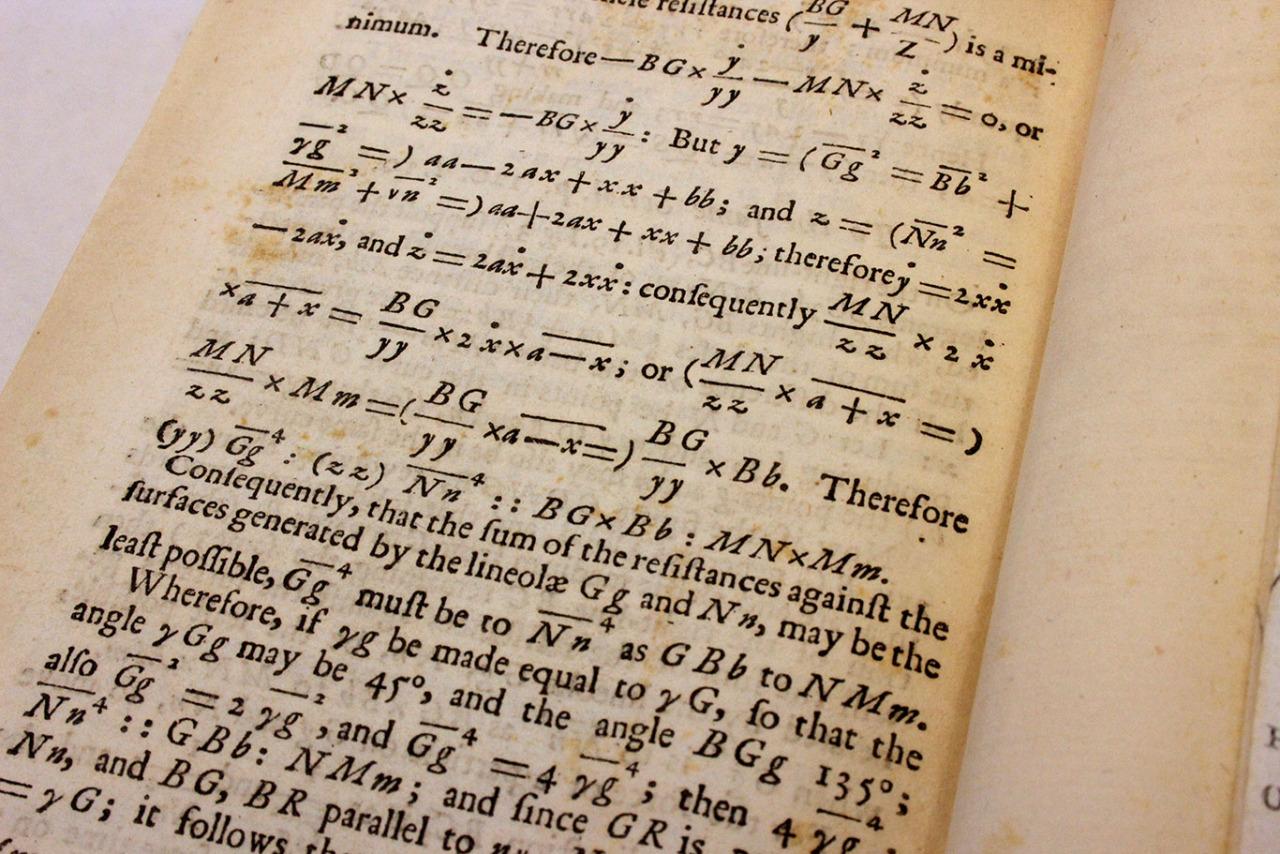 reſiſtances (BG/y + MN/Z) is a mi-
nimum. Therefore — BG × ẏ/yy — MN × ż/zz = 0, or
MN × ż/zz = — BG × ẏ/yy : But y = (G̅g̅² = B̅b̅² +
γ̅g̅² =) aa — 2ax + xx + bb; and z = (N̅n̅² =
M̅m̅² + ν̅n̅² =) aa + 2ax + xx + bb; therefore ẏ = 2xẋ
— 2aẋ, and ż = 2aẋ + 2xẋ : conſequently MN/zz × 2ẋ
× a̅ ̅+̅ ̅x̅ = BG/yy × 2ẋ × a̅ ̅—̅ ̅x̅; or (MN/zz × a̅ ̅+̅ ̅x̅ =)
MN/zz × Mm = (BG/yy × a̅ ̅—̅ ̅x̅ =) BG/yy × Bb. Therefore
(yy) G̅g̅⁴ : (zz) N̅n̅⁴ :: BG × Bb : MN × Mm.
Conſequently, that the ſum of the reſiſtances againſt the
ſurfaces generated by the lineolæ Gg and Nn, may be the
leaſt poſſible, G̅g̅⁴ muſt be to N̅n̅⁴ as GBb to NMm.
Wherefore, if γg be made equal to γG, ſo that the
angle γGg may be 45°, and the angle BGg 135°;
alſo G̅g̅² = 2 γ̅g̅², and G̅g̅⁴ = 4 γ̅g̅⁴; then 4 γ̅g̅⁴ :
N̅n̅⁴ :: GBb : NMm; and ſince GR is
Nn, and BG, BR parallel to
= γG; it follows